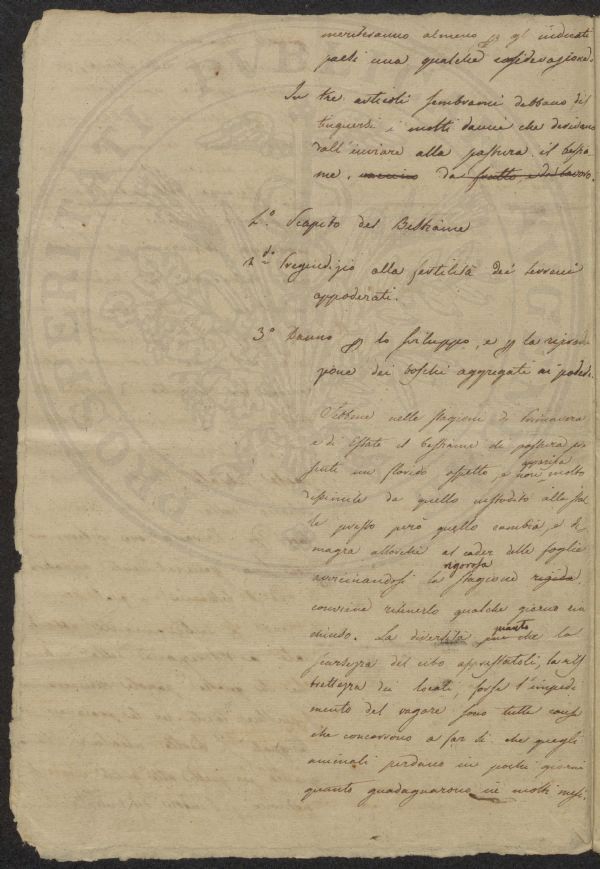 meriteranno almeno p gl' indicati
paesi una qualche considerazione.
In tre articoli sembrami debbano dis
tinguersi i molti danni che derivano
dall' inviare alla pastura il bestia
me, vaccino da frutto, e da lavoro.
1.° Scapito del Bestiame
2.do Pregiudizio alla fertilità dei terreni
appoderati.
3.° Danno p lo sviluppo, e p la riprodu
zione dei boschi aggregati ai poderi.
Sebbene nelle stagioni di Primavera
e di Estate il bestiame da pastura pre
senti un florido aspetto, e non apparisca molto
dissimile da quello custodito alla stal
le presto però quello cambia, e di
magra allorchè al cader delle foglie
avvicinandosi la rigorosa stagione rigida
conviene ritenerlo qualche giorno rin
chiuso. La diversità quanto che la
scarsezza del cibo apprestatoli, la ris
trettezza dei locali, forse l'impedi
mento del vagare sono tutte cause
che concorrono a far sì che quegli
animali perdano in pochi giorni
quanto guadagnarono in molti mesi.